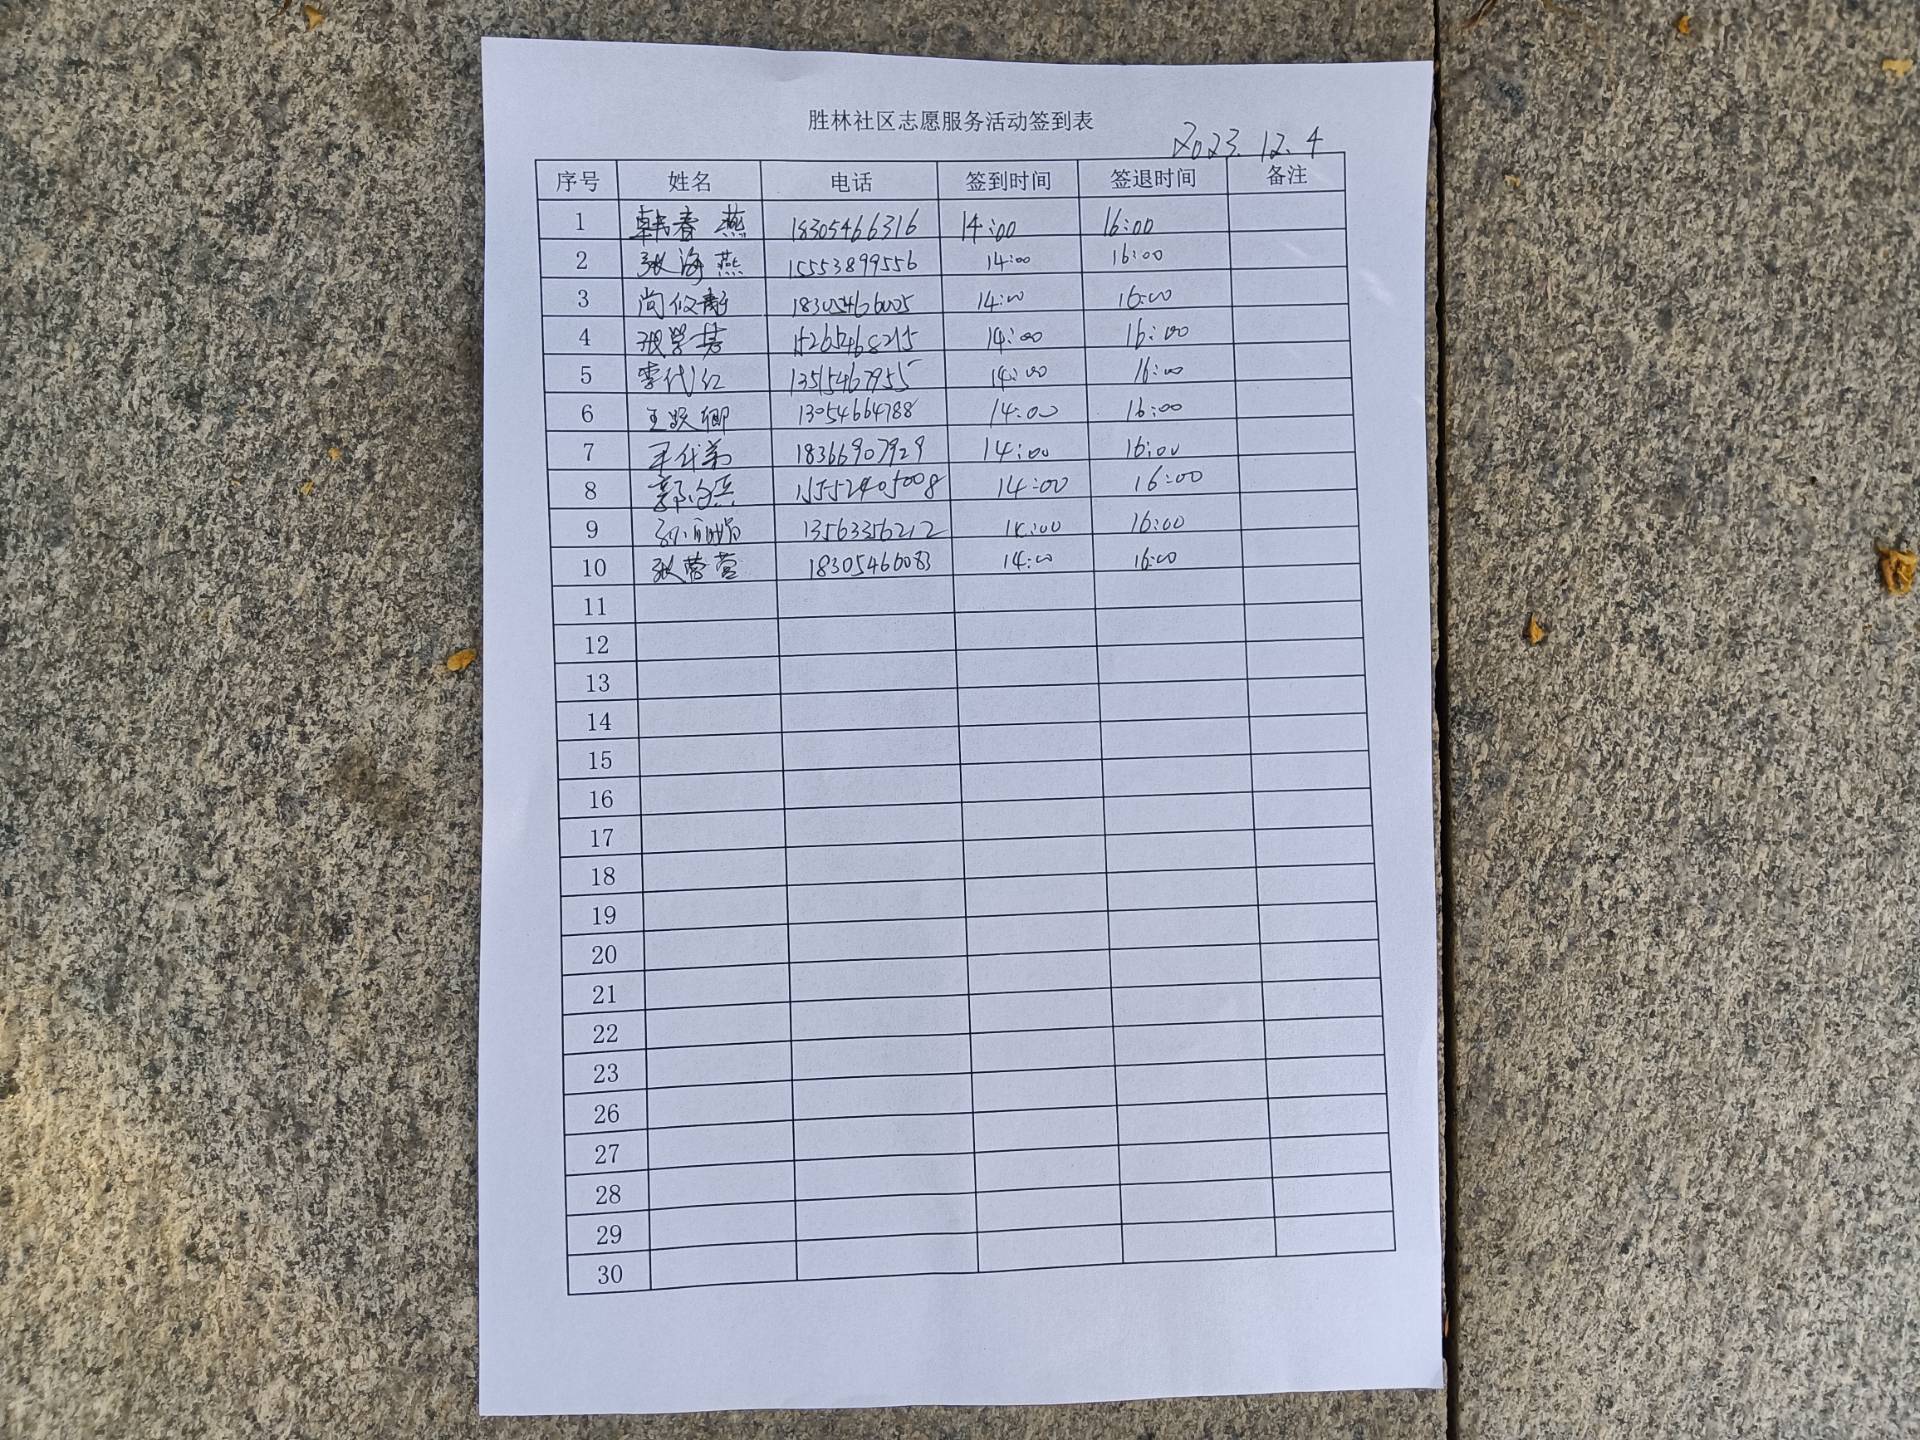 胜林社区志愿服务活动签到表
2023.12.4
序号 姓名 电话 签到时间 签退时间 备注
1 韩春燕 18305466316 14:00 16:00
2 张海燕 15553899556 14:00 16:00
3 18305466005 14:00 16:00
4 15265468215 14:00 16:00
5 李代红 13515467955 14:00 16:00
6 王跃卿 13054664788 14:00 16:00
7 18366907929 14:00 16:00
8 15552405008 14:00 16:00
9 13563356212 14:00 16:00
10 18305460083 14:00 16:00
11
12
13
14
15
16
17
18
19
20
21
22
23
26
27
28
29
30